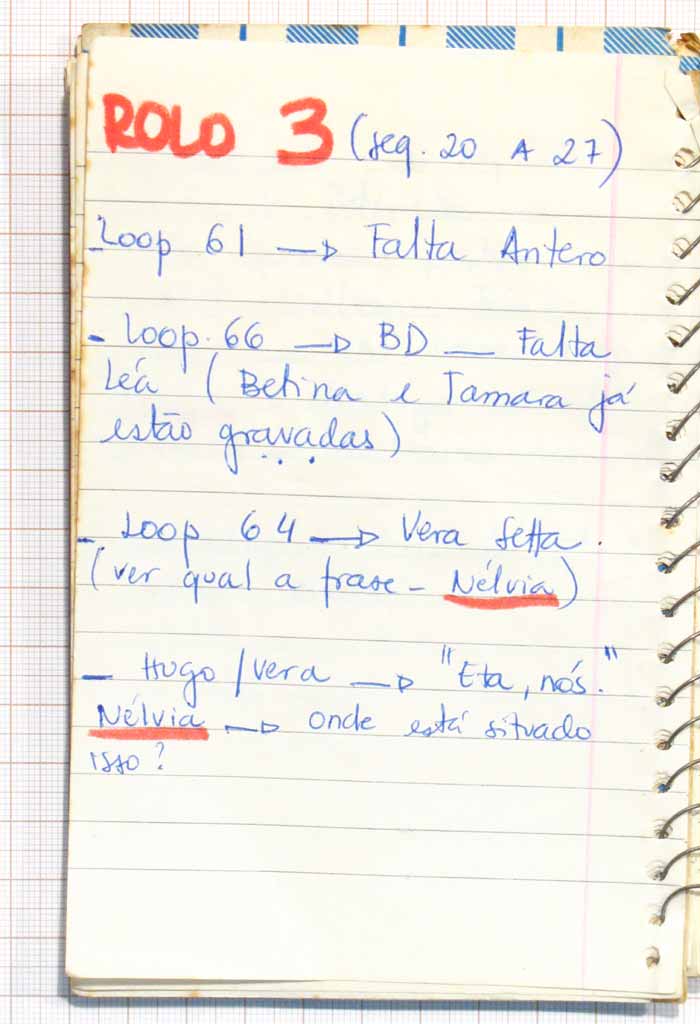 ROLO 3 (seq. 20 A 27)
- Loop 61 → Falta Antero
- Loop. 66 → BD — Falta
Léa (Betina e Tamara já
estão gravadas)
...
- Loop 64 → Vera Setta.
(ver qual a frase - Nélvia)
- Hugo / Vera → "Eta, nós."
Nélvia → onde está situado
isso?